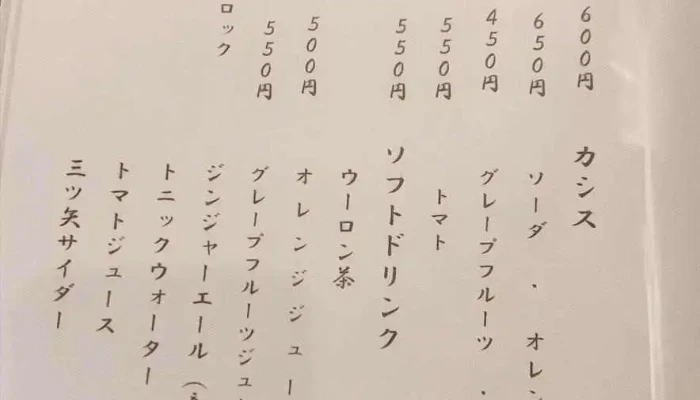 600円
650円
450円
550円
550円
500円
550円
ロック
カシス
ソーダ ・ オレン
グレープフルーツ ・
トマト
ソフトドリンク
ウーロン茶
オレンジジュー
グレープフルーツジュ
ジンジャーエール (
トニックウォーター
トマトジュース
三ツ矢サイダー